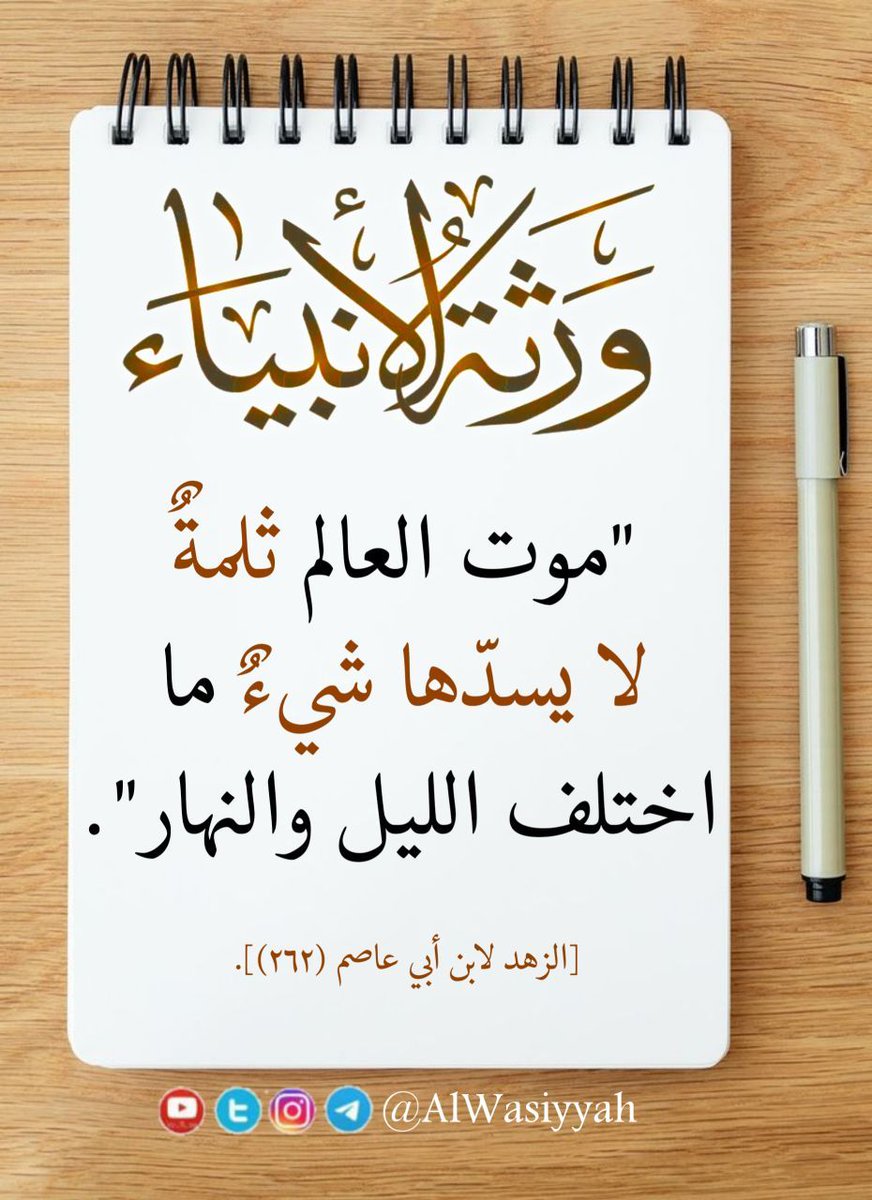 ورثة الأنبياء
"موت العالم ثلمةٌ
لا يسدّها شيءٌ ما
اختلف الليل والنهار".
[الزهد لابن أبي عاصم (٢٦٢)].
@AlWasiyyah